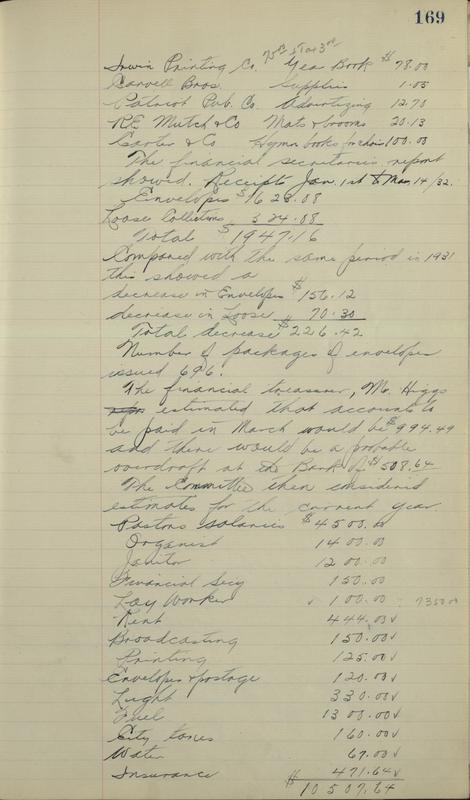 169
75 @ 5 to 3
Irwin Printing Co. Year Book $ 78.00
Carvell Bros. Supplies 1.05
Patriot Pub. Co. Advertizing 12.70
R E Mutch & Co Mats & brooms 20.13
Carter & Co Hymn books for choir 100.00
The financial secretaries report
showed. Receipts Jan. 1st to Mar. 14/32.
Envelopes $1623.08
Loose Collections 324.08
Total $1947.16
Compared with the same period in 1931
this showed a
decrease in Envelopes $156.12
decrease in Loose " 70.30
Total decrease $226.42
Number of packages of envelopes
issued 696.
The financial treasurer, Mr. Higgs
estimated that accounts to
be paid in March would be $994.49
and there would be a probable
overdraft at the Bank of $508.64
The Committee then considered
estimates for the current year.
Pastors salaries $4500.00
Organist 1400.00
Janitor 1200.00
Financial Secy 150.00
Lay Worker ✓ 100.00 - 7350.00
Rent 444.00 ✓
Broadcasting 150.00 ✓
Printing 125.00 ✓
Envelopes & postage 120.00 ✓
Light 330.00 ✓
Fuel 1300.00 ✓
City taxes 160.00 ✓
Water 67.00 ✓
Insurance 471.64 ✓
$ 10507.64